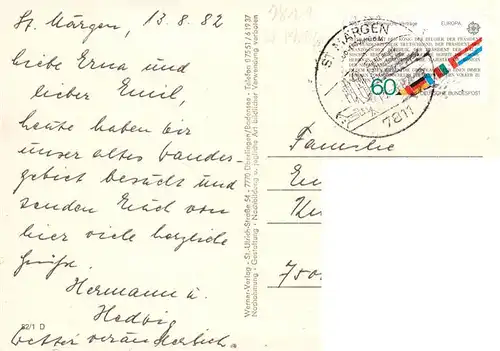 St. Märgen, 13.8.82
liebe Erna und
lieber Emil,
heute haben wir
unser altes Wander-
gebiet besucht und
senden Euch von
hier viele herzliche
Grüße.
Hermann u.
Hedwig
Wetter veränderlich
82/1 D
Werner-Verlag - St.-Ulrich-Straße 54 - 7770 Überlingen/Bodensee - Telefon 07551/61937
Nachahmung - Gestaltung - Nachbildung u. jegliche Art bildlicher Verwendung verboten
ST. MÄRGEN
7811
EUROPA
60
DEUTSCHE BUNDESPOST
Familie